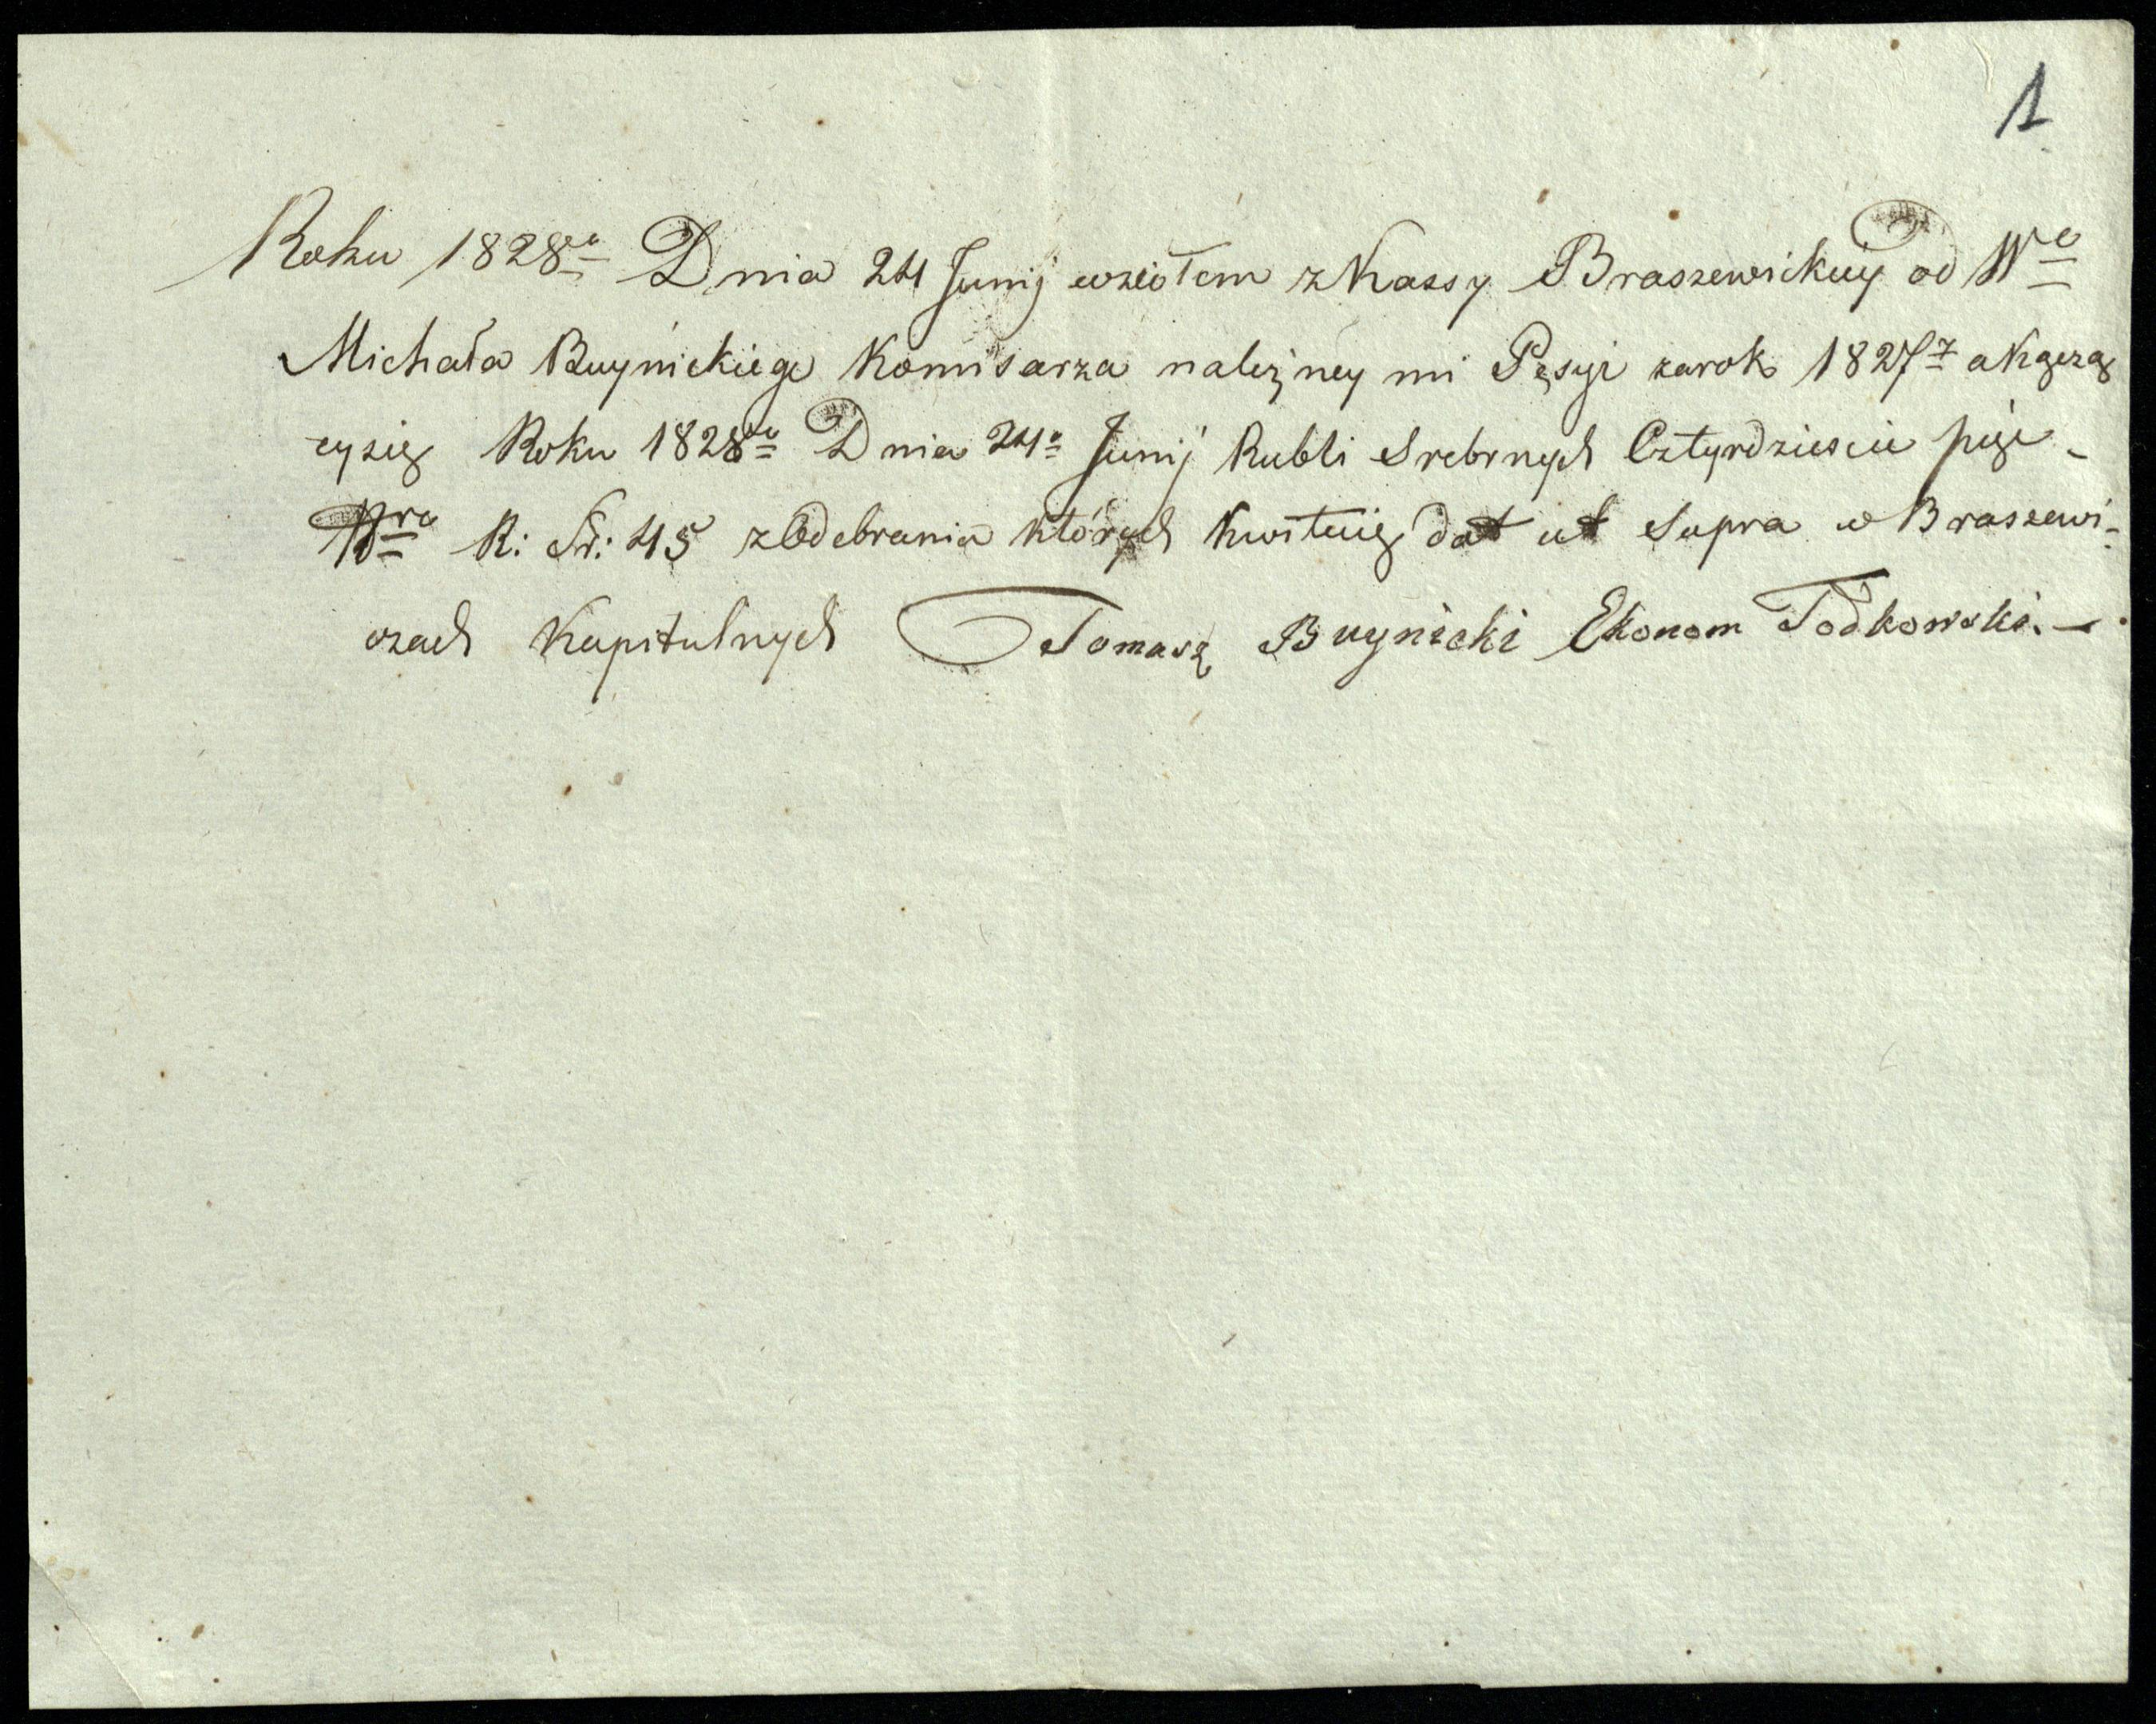 1
Roku 1828go Dnia 24 Junij wziołem z Kassy Braszewickiy od Wo
Michała Buynickiego Komisarza należney mi Pęsyi za rok 1827 z a Kączą
cysię Roku 1828go Dnia 24o Junij Rubli Srebrnych Cztyrdziescie pięc
Nro R: Sr: 45 z Odebrania których Kwituię dat ut Supra w Braszewi-
czach Kapitulnych Tomasz Buynicki Ekonom Todkowski. —